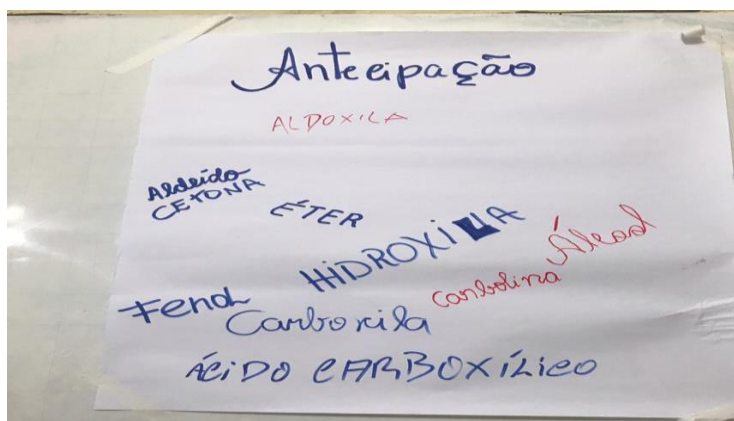 Antecipação
ALDOXILA
Aldeído
CETONA
ÉTER
HIDROXILA
Álcool
Fenol
Carbolina
Carboxila
ÁCIDO CARBOXÍLICO